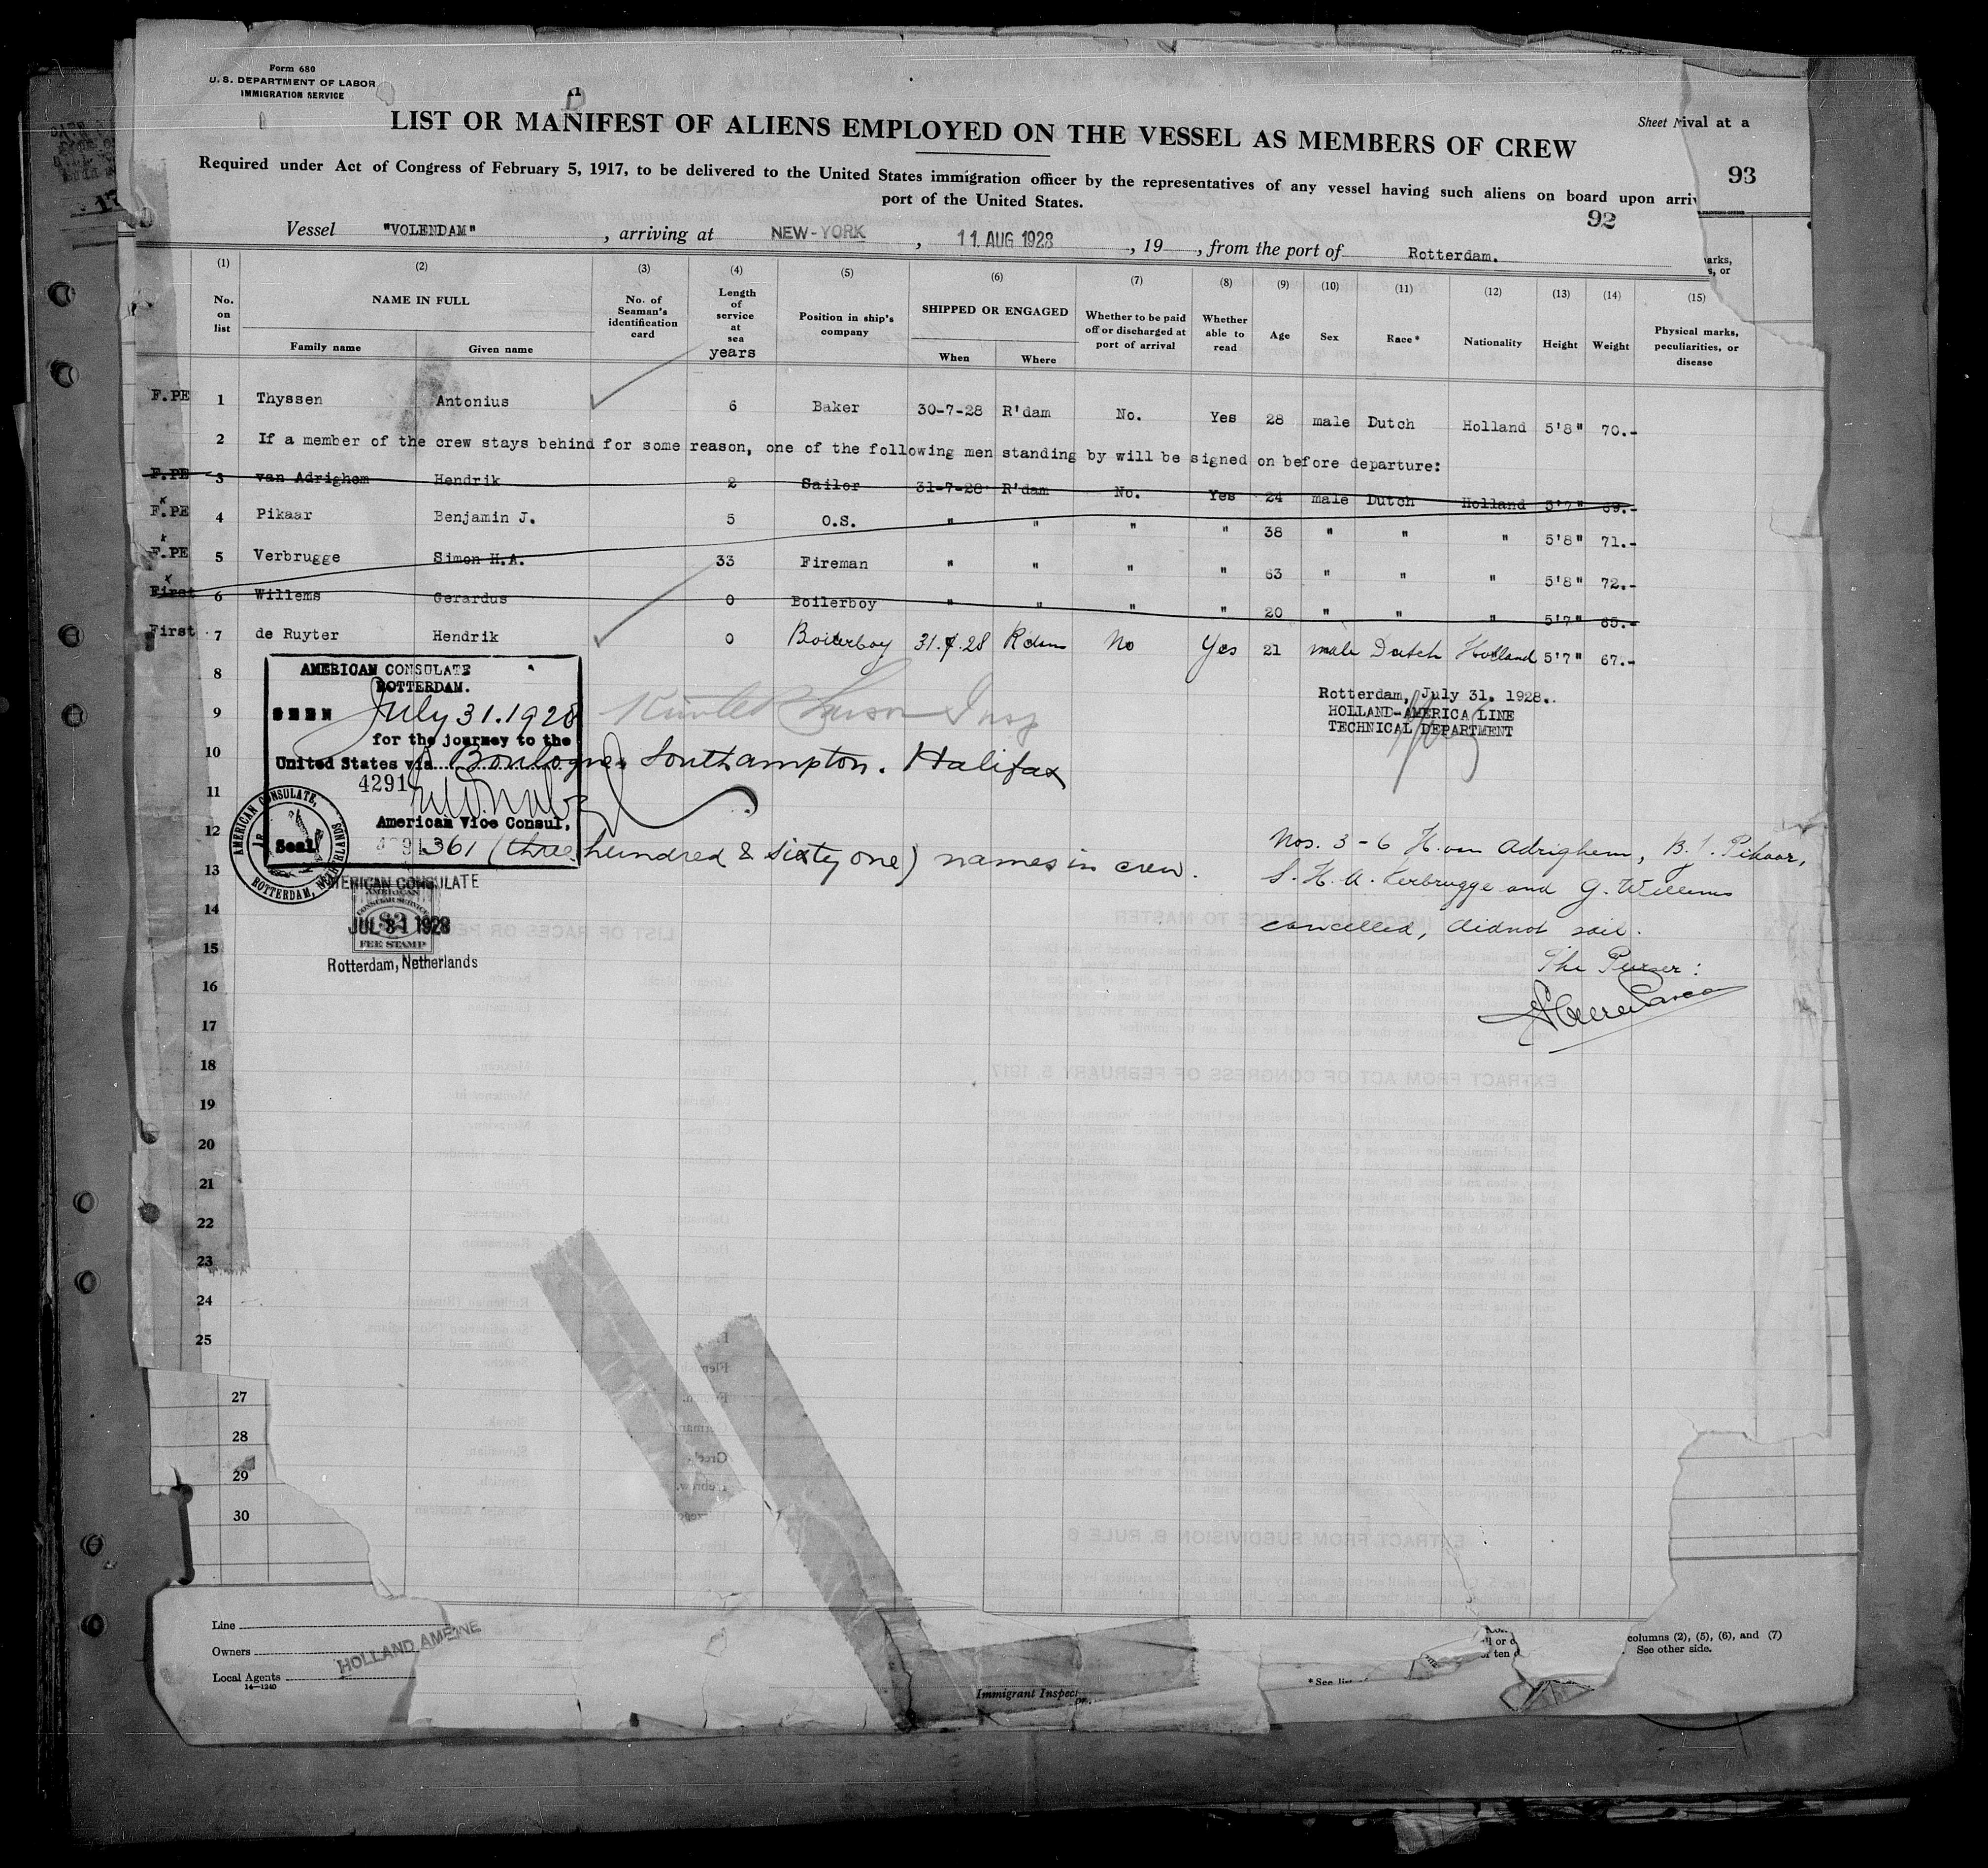 Form 680
U. S. DEPARTMENT OF LABOR
IMMIGRATION SERVICE
Sheet rival at a
LIST OR MANIFEST OF ALIENS EMPLOYED ON THE VESSEL AS MEMBERS OF CREW
Required under Act of Congress of February 5, 1917, to be delivered to the United States immigration officer by the representatives of any vessel having such aliens on board upon arriv
port of the United States.
93
92
Vessel "VOLENDAM", arriving at NEW-YORK, 11 AUG 1928, 19, from the port of Rotterdam.
(1) (2) (3) (4) (5) (6) (7) (8) (9) (10) (11) (12) (13) (14) (15)
No. on list NAME IN FULL Family name Given name No. of Seaman's identification card Length of service at sea years Position in ship's company SHIPPED OR ENGAGED When Where Whether to be paid off or discharged at port of arrival Whether able to read Age Sex Race* Nationality Height Weight Physical marks, peculiarities, or disease
arks,
s, or
F.PE 1 Thyssen Antonius 6 Baker 30-7-28 R'dam No. Yes 28 male Dutch Holland 5'8" 70.-
2 If a member of the crew stays behind for some reason, one of the following men standing by will be signed on before departure:
F.PE 3 van Adrighem Hendrik 2 Sailor 31-7-28 R'dam No. Yes 24 male Dutch Holland 5'7" 69.-
F.PE 4 Pikaar Benjamin J. 5 O.S. " " " " 38 " " " 5'8" 71.-
F.PE 5 Verbrugge Simon H.A. 33 Fireman " " " " 63 " " " 5'8" 72.-
First 6 Willems Gerardus 0 Boilerboy " " " " 20 " " " 5'7" 65.-
First 7 de Ruyter Hendrik 0 Boilerboy 31.7.28 R'dam No Yes 21 male Dutch Holland 5'7" 67.-
8
9
10
11
12
13
14
15
16
17
18
19
20
21
22
23
24
25
27
28
29
30
AMERICAN CONSULATE
ROTTERDAM.
SEEN July 31. 1928
for the journey to the
United States via Boulogne, Southampton. Halifax
4291
American Vice Consul,
AMERICAN CONSULATE, ROTTERDAM, NETHERLANDS
Seal
361 (three hundred & sixty one) names in crew.
AMERICAN CONSULATE
JUL 31 1928
AMERICAN CONSULAR SERVICE
$2
FEE STAMP
Rotterdam, Netherlands
Insp
Rotterdam, July 31. 1928.
HOLLAND-AMERICA LINE
TECHNICAL DEPARTMENT
Nos. 3 - 6 H. van Adrighem, B. J. Pikaar,
S. H. A. Verbrugge and G. Willems
cancelled, did not sail.
The Purser:
Line
Owners
Local Agents
14—1240
HOLLAND AME NE
Immigrant Inspect
or.
*See lis
columns (2), (5), (6), and (7)
See other side.